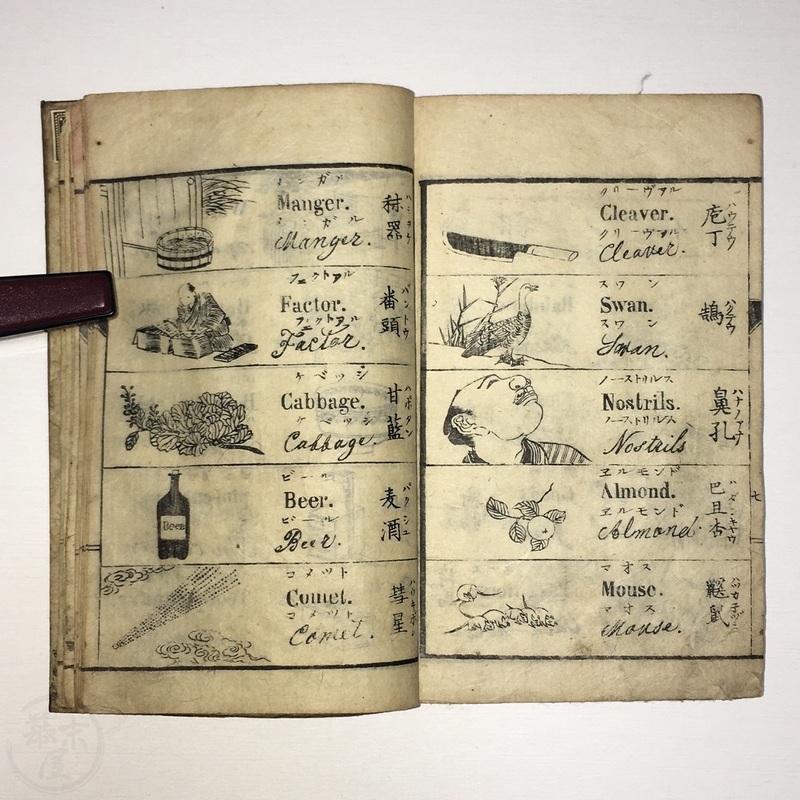 ハウテウ
庖丁
クリーヴァル
Cleaver.
クリーヴァル
Cleaver.
ハクテウ
鵠
スワン
Swan.
スワン
Swan.
ハナノアナ
鼻孔
ノーストリルス
Nostrils.
ノーストリルス
Nostrils
巴且杏
ヱルモンド
Almond.
ヱルモンド
Almond.
七
マオス
Mouse.
マオス
Mouse.
秣器
メンガル
Manger.
メンガル
Manger.
バントウ
番頭
フェクトァル
Factor.
フェクトァル
Factor.
ハボタン
甘藍
ケベッジ
Cabbage.
ケベッジ
Cabbage.
バクシュ
麦酒
ビール
Beer.
ビール
Beer.
Beer
ハウキボシ
彗星
コメット
Comet.
コメット
Comet.